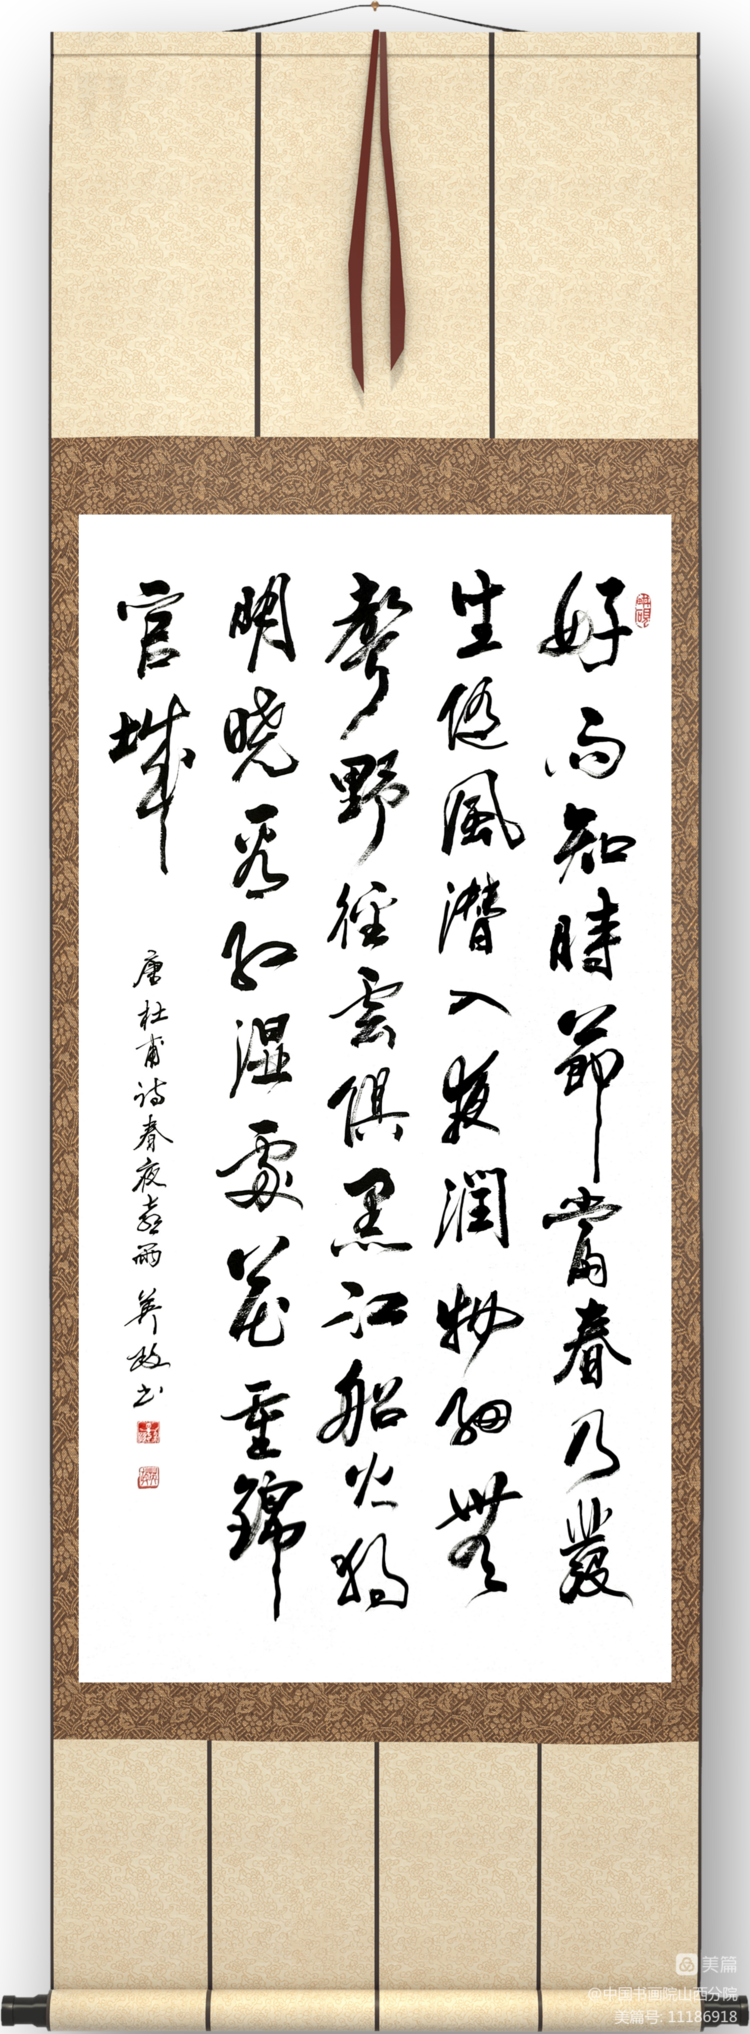 好雨知時節當春乃發
生随風潜入夜潤物細無
聲野徑雲俱黑江船火獨
明晓看红湿處花重錦
官城
唐杜甫诗春夜喜雨 英政书
美篇
@中国书画院山西分院
美篇号: 11186918